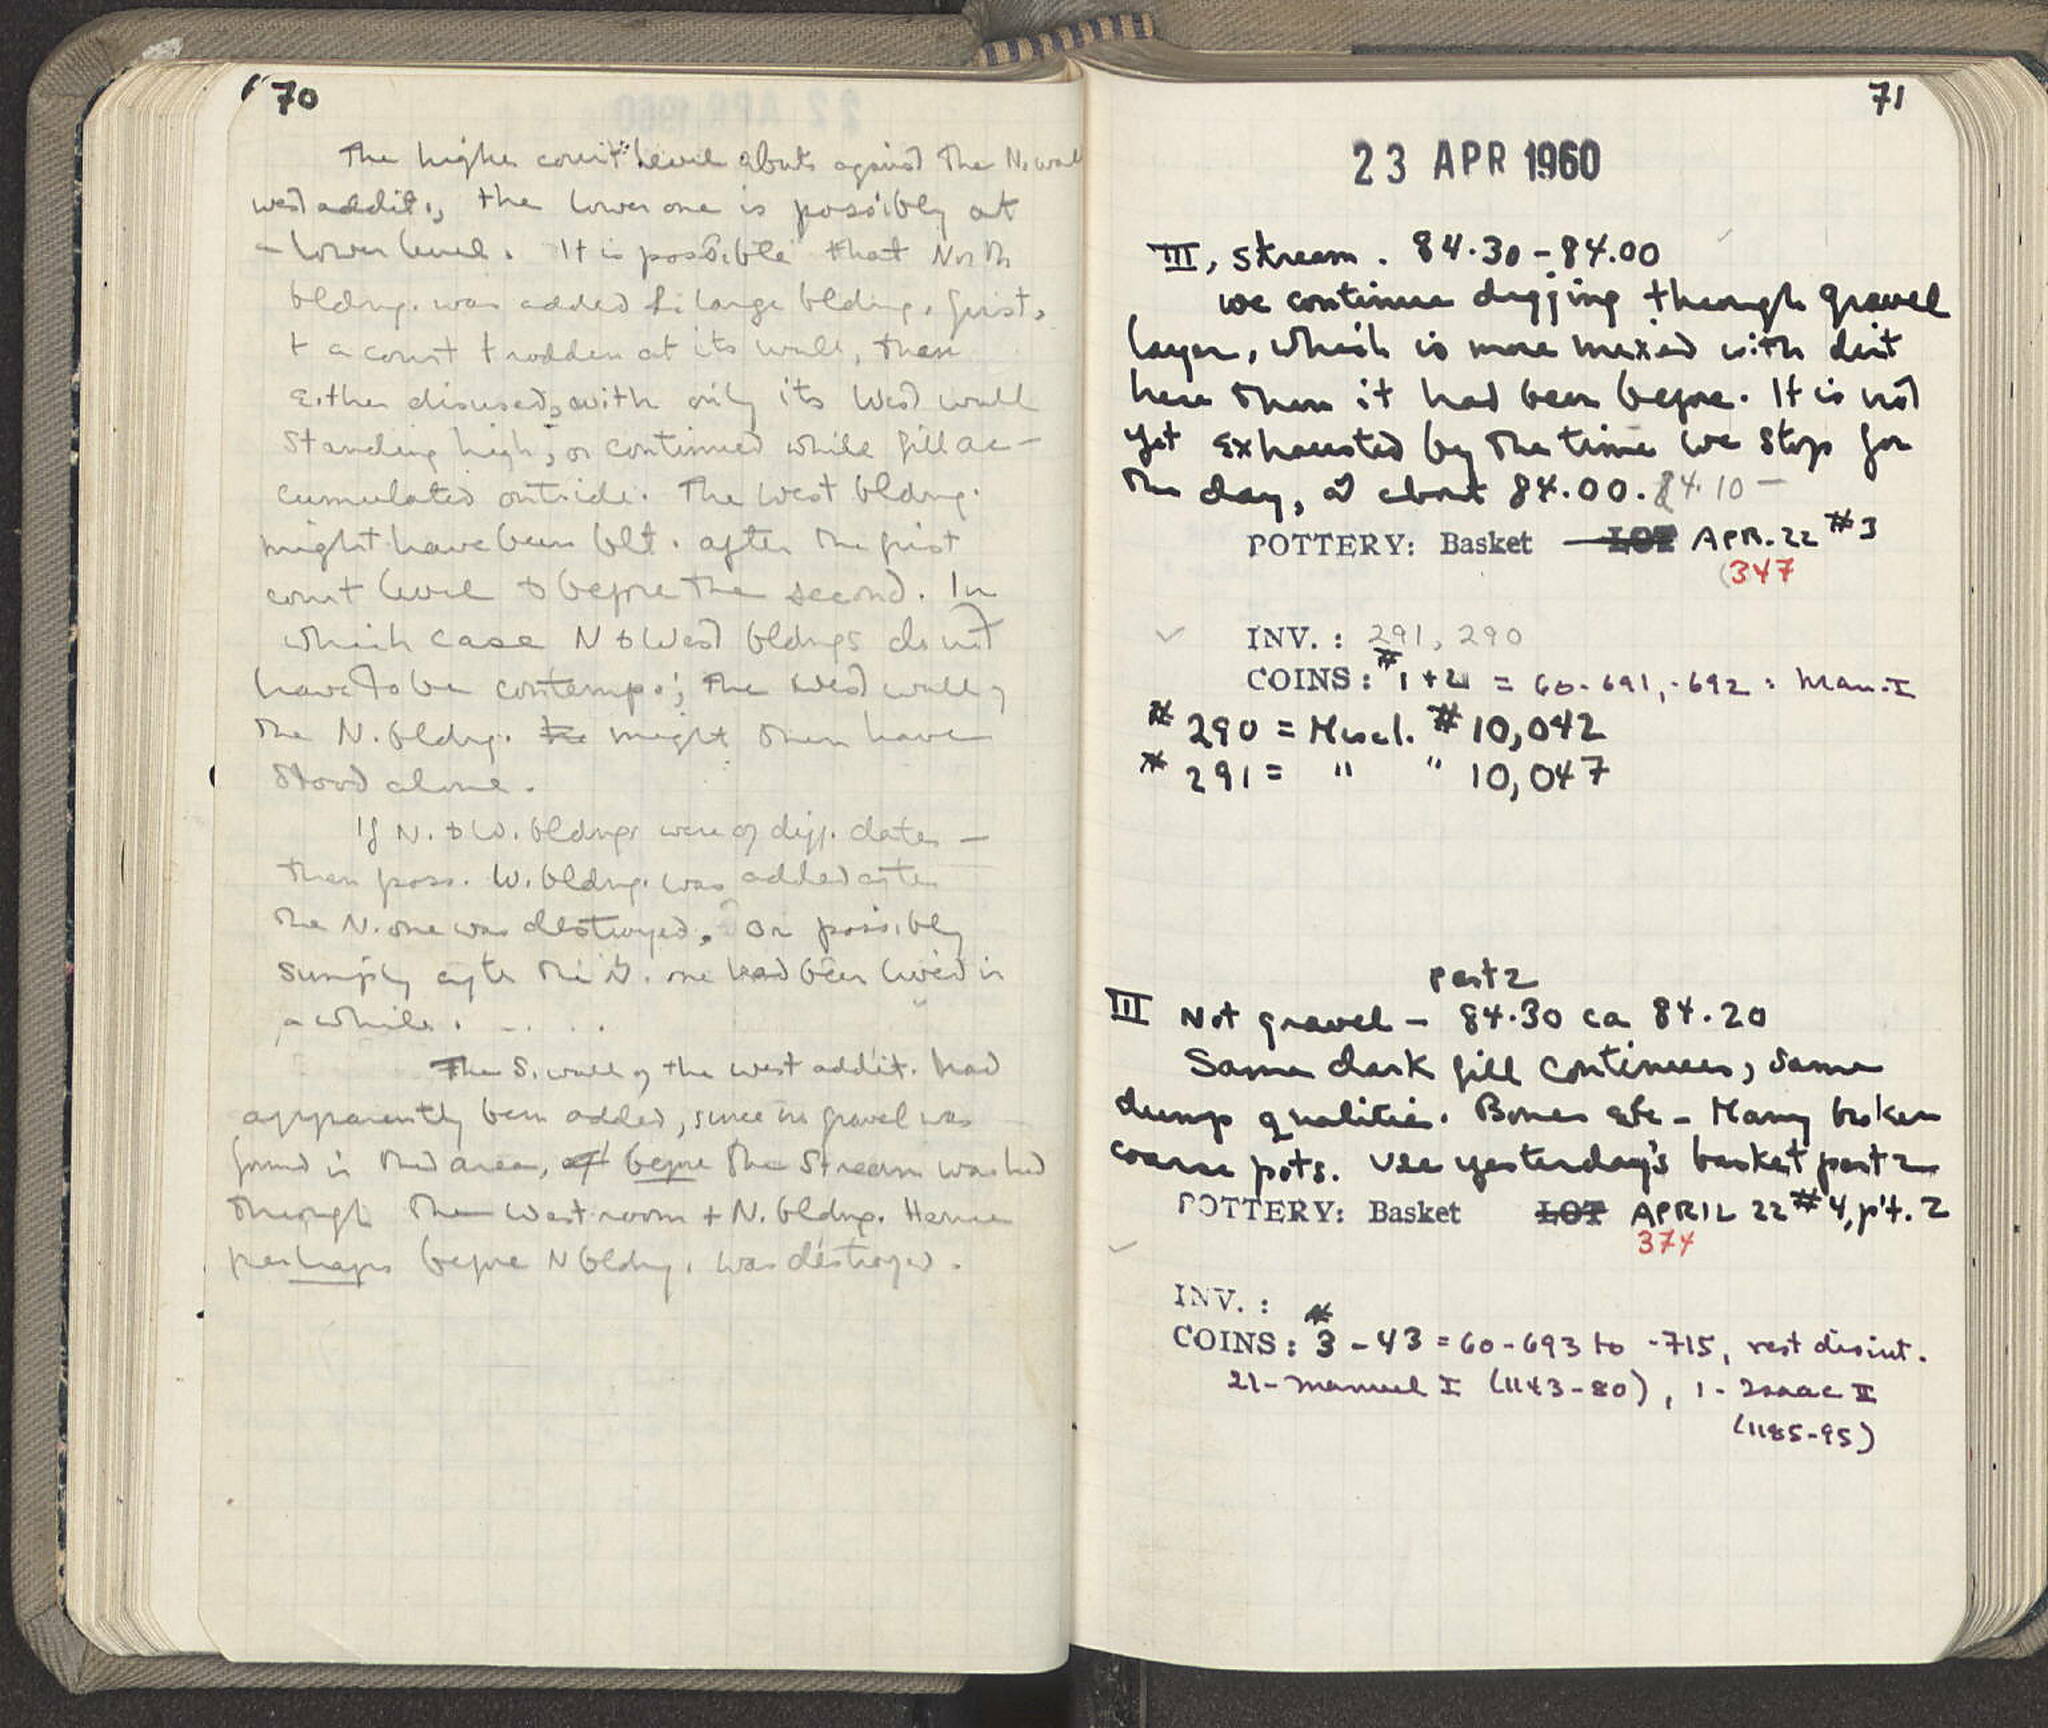 70
The higher court level abuts against the N. wall
west addit., the lower one is possibly at
a lower level. It is possible that North
bldng. was added to large bldng. first,
+ a court trodden at its wall, then
either disused, with only its West wall
standing high, or continued while fill ac-
cumulated outside. The West bldng.
might have been blt. after the first
court level & before the second. In
which case N & West bldngs do not
have to be contemp.; the West wall of
the N. bldng. might then have
stood alone.
If N. & W. bldngs were of diff. dates —
then poss. W. bldng. was added after
the N. one was destroyed. Or possibly
simply after the N. one had been lived in
a while. - . . .
The S. wall of the west addit. had
apparently been added, since no gravel was
found in that area, before the Stream washed
through the West room + N. bldng. Hence
perhaps before N bldng. was destroyed.
71
23 APR 1960
III, stream. 84.30-84.00
we continue digging through gravel
layer, which is more mixed with dirt
here than it had been before. It is not
yet exhausted by the time we stop for
the day, at about 84.00. 84.10 -
POTTERY: Basket LOT APR. 22 #3
(347
INV.: 291, 290
COINS: #1+2 = 60-691, -692: Man. I
# 290 = Miscl. # 10,042
# 291 = " " 10,047
part 2
III Not gravel - 84.30 ca 84.20
Same dark fill continues, same
dump qualities. Bones etc - Many broken
coarse pots. Use yesterday's basket part 2
POTTERY: Basket LOT APRIL 22 #4, p't. 2
374
INV.:
COINS: #3-43 = 60-693 to -715, rest disint.
21- Manuel I (1143-80), 1- Isaac II
(1185-95)